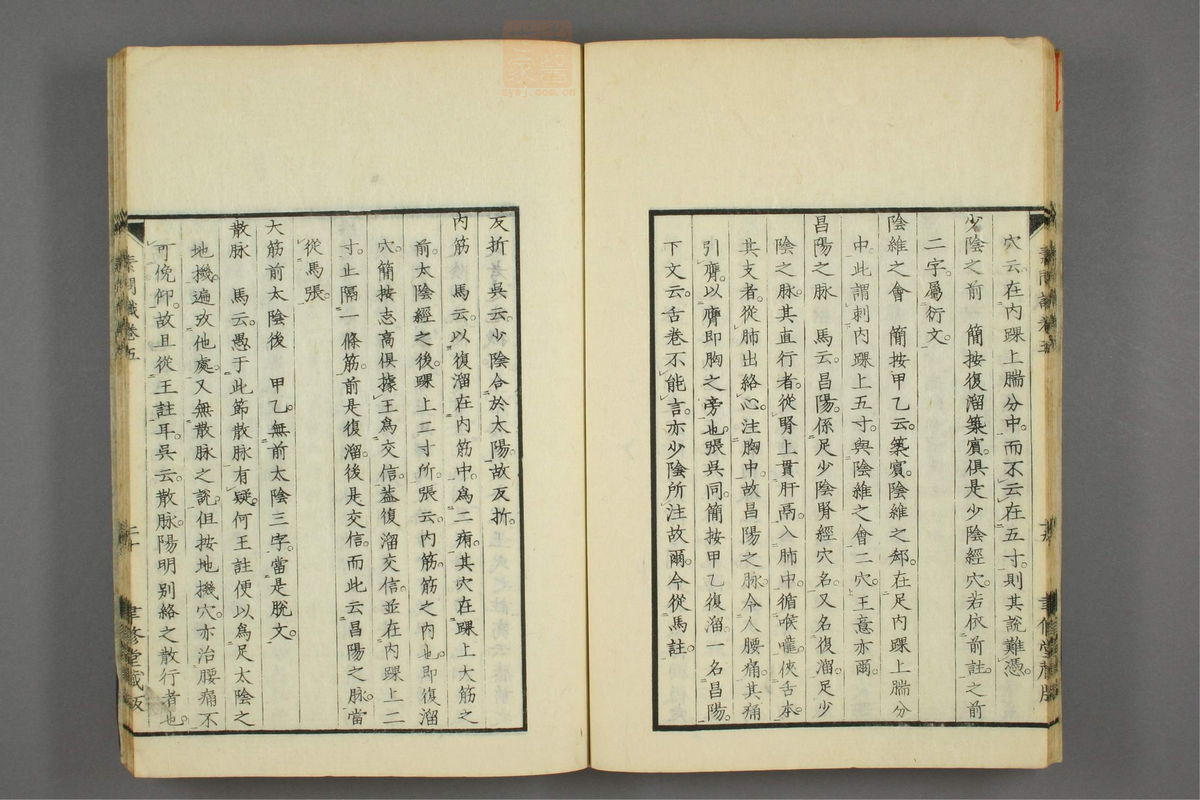 穴。云在内踝上腨分中。而不云在五寸。則其說難憑。
少陰之前　簡按復溜築賓。俱是少陰經穴。若依前註。之前
二字。屬衍文。
陰維之會　簡按甲乙云。築賓。陰維之郄。在足内踝上腨分
中。此謂刺内踝上五寸。與陰維之會二穴。王意亦爾。
昌陽之脉　馬云。昌陽。係足少陰腎經穴名。又名復溜。足少
陰之脉。其直行者。從腎上貫肝鬲。入肺中。循喉嚨。俠舌本。
其支者。從肺出絡心。注胸中。故昌陽之脉。令人腰痛。其痛
引膺。以膺即胸之旁也。張吳同。簡按甲乙復溜。一名昌陽。
下文云。舌卷不能言。亦少陰所注故爾。今從馬註。
反折　吳云。少陰合於太陽。故反折。
内筋　馬云。以復溜在内筋中。為二痏。其穴在踝上大筋之
前。太陰經之後。踝上二寸所。張云。内筋。筋之内也。即復溜
穴。簡按志高俱據王為交信。蓋復溜交信。並在内踝上二
寸。止隔一條筋。前是復溜。後是交信。而此云昌陽之脉。當
從馬張。
大筋前太陰後　甲乙。無前太陰三字。當是脫文。
散脉　馬云。愚于此節散脉有疑。何王註便以為足太陰之
地機。遍攷他處。又無散脉之說。但按地機穴。亦治腰痛不
可俛仰。故且從王註耳。吳云。散脉。陽明别絡之散行者也。
素問識卷五
二十
聿修堂藏板